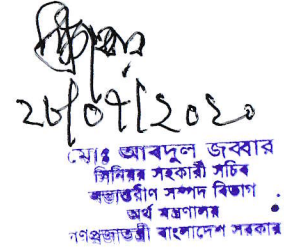 ২৮/০৭/২০২০
মোঃ আবদুল জব্বার
সিনিয়র সহকারী সচিব
অভ্যন্তরীণ সম্পদ বিভাগ
অর্থ মন্ত্রণালয়
গণপ্রজাতন্ত্রী বাংলাদেশ সরকার